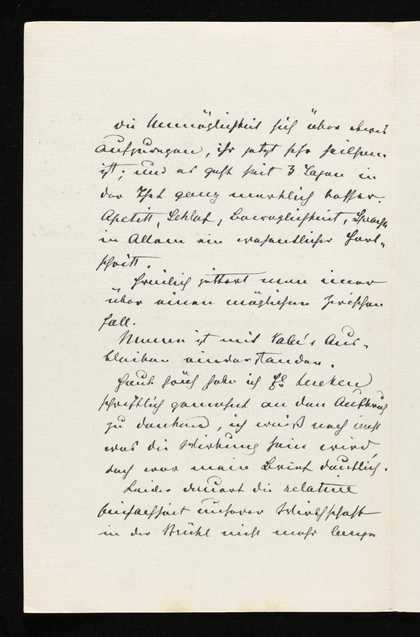 die Unmöglichkeit sich über etwas
aufzuregen, ihr jetzt sehr heilsam
ist; und es geht seit 3 Tagen in
der That ganz merklich besser.
Apetitt, Schlaf, Beweglichkeit, Sprache
in Allem ein wesentlicher Fort-
schritt.
Freilich zittert man immer
über einen möglichen
fall.
Mama ist mit Aus-
bleiben einverstanden.
Heute früh habe ich
schriftlich gemahnt an den Aufbruch
zu denken, ich weiß noch nicht
was die Wirkung sein wird,
doch war mein Brief deutlich.
Leider dauert die relative
unserer Wirthschaft
in der Brühl nicht mehr lange